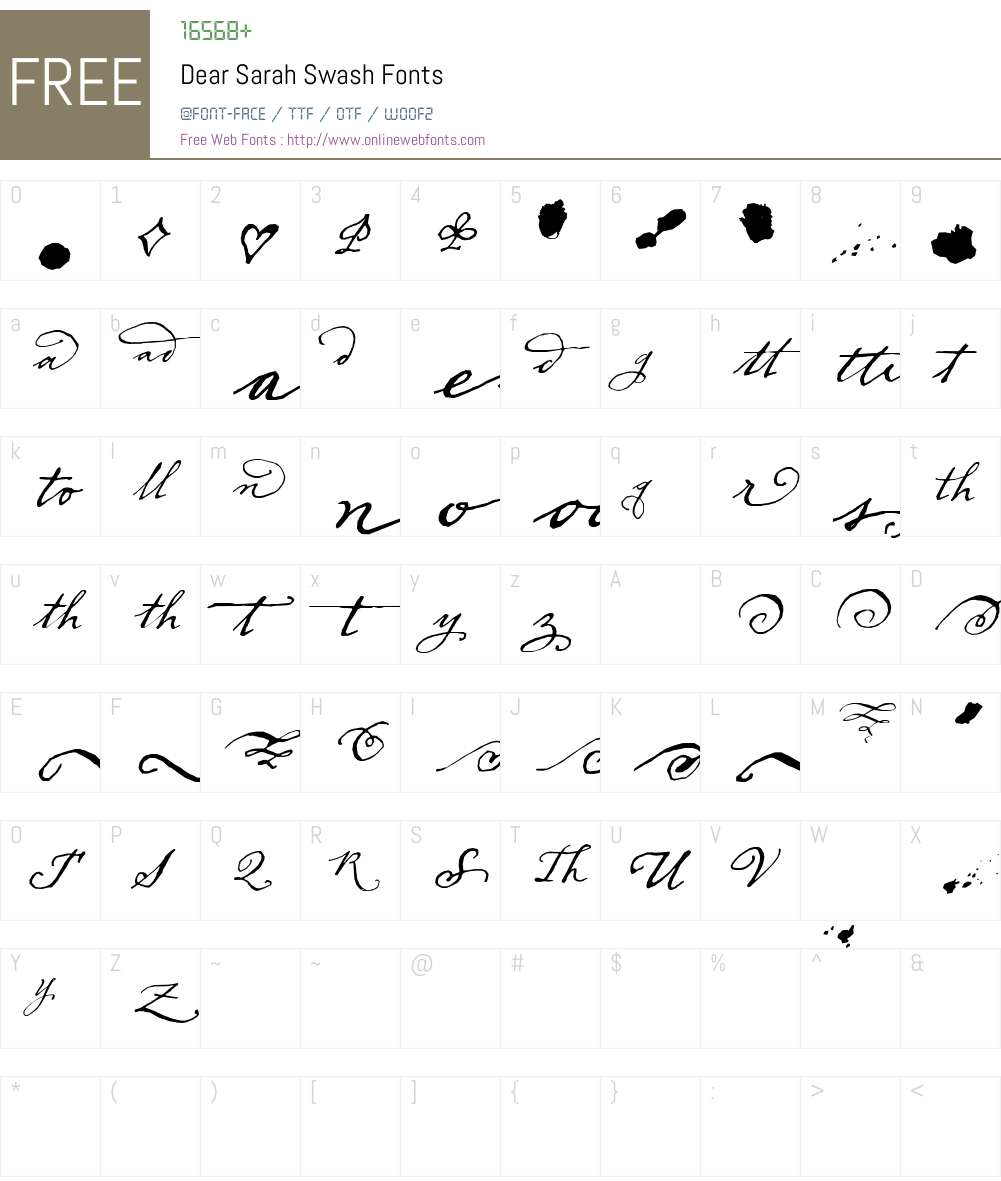 FREE
16568+
Dear Sarah Swash Fonts
@FONT-FACE / TTF / OTF / WOOF2
Free Web Fonts : http://www.onlinewebfonts.com
0 1 2 3 4 5 6 7 8 9
a b c d e f g h i j
a ad a d e d g tt tte t
k l m n o p q r s t
to ll n n o o q r s th
u v w x y z A B C D
th th t t y z
E F G H I J K L M N
O P Q R S T U V W X
T S Q R S Th U V
Y Z ~ ~ @ # $ % ^ &
y Z
* ( ) [ ] { } : > <